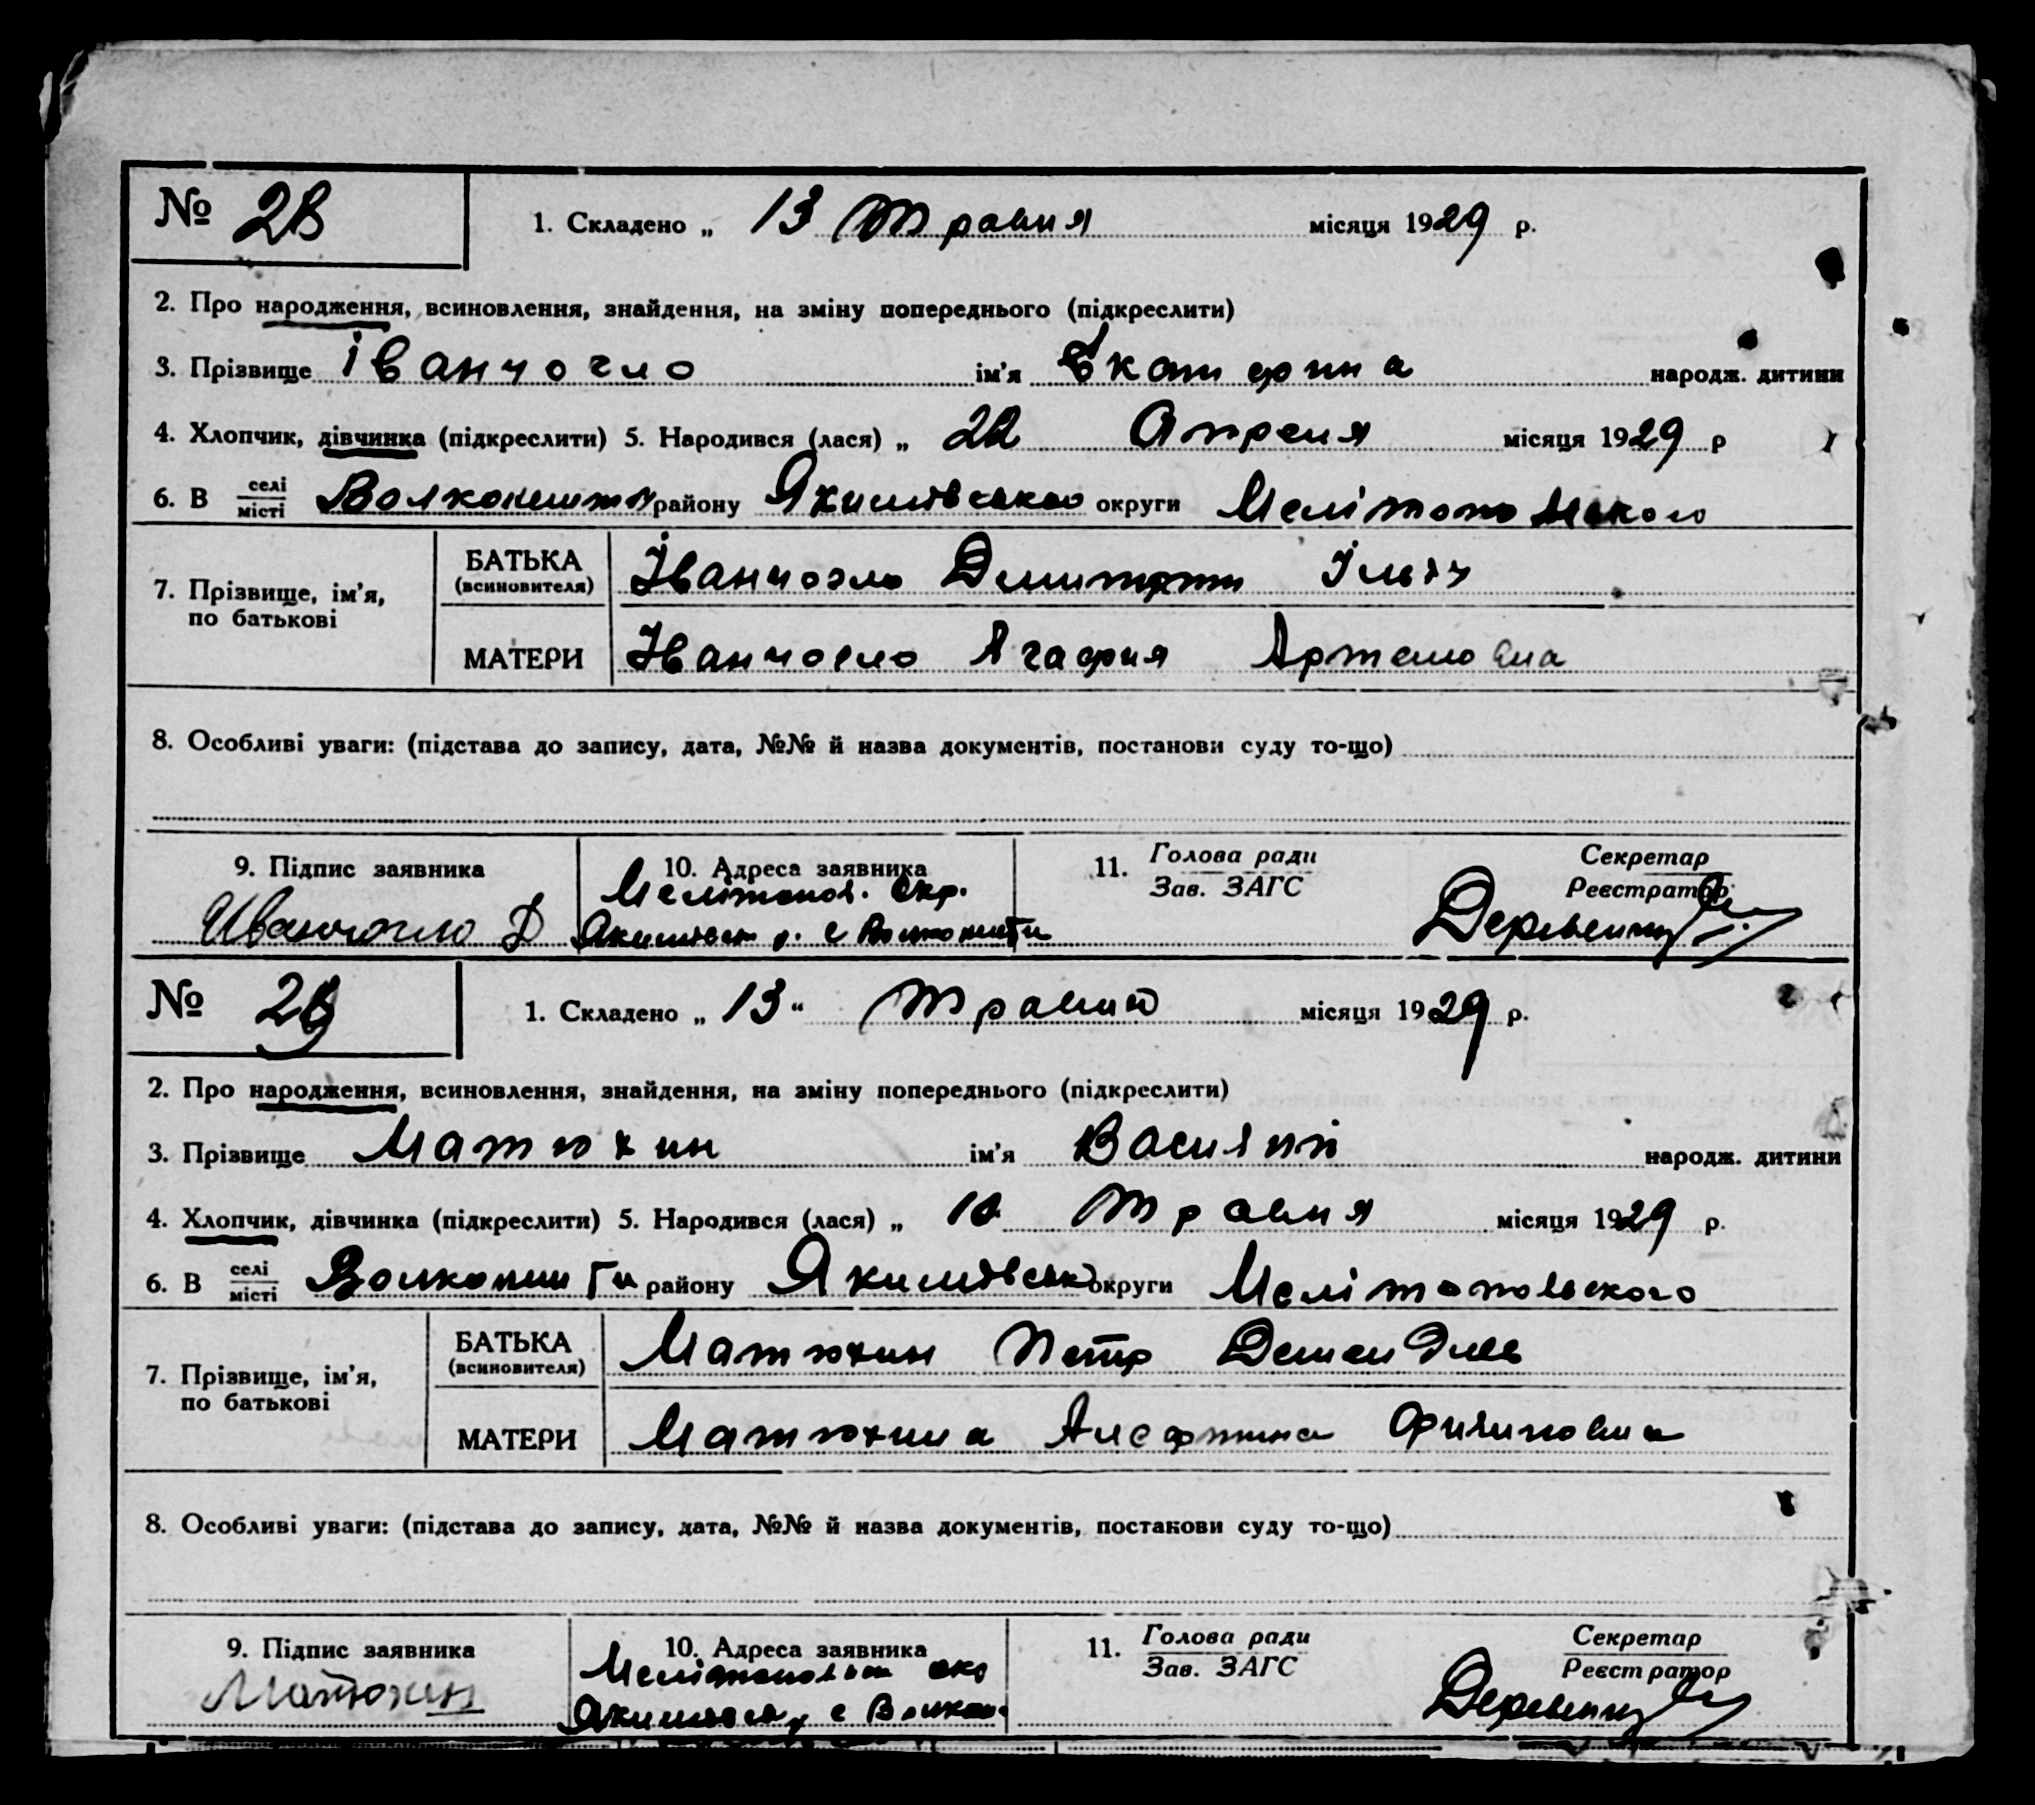 № 28 1. Складено „ 13 Травня місяця 1929 р.
2. Про народження, всиновлення, знайдення, на зміну попереднього (підкреслити)
3. Прізвище Іванчогло ім'я Екатерина народж. дитини
4. Хлопчик, дівчинка (підкреслити) 5. Народився (лася) „ 22 Апреля місяця 1929 р
6. В селі/місті району Якимівсько округи Мелітопольского
7. Прізвище, ім'я, по батькові
БАТЬКА (всиновителя) Іванчогло Дмитрий Ільич
МАТЕРИ Іванчогло Агафия Артемовна
8. Особливі уваги: (підстава до запису, дата, №№ й назва документів, постанови суду то-що)
9. Підпис заявника 10. Адреса заявника 11. Голова ради Секретар
Зав. ЗАГС Реєстратор
Мелітопол. окр.
Иванчогло Д Якимівськ р. с
№ 29 1. Складено „ 13 " Травня місяця 1929 р.
2. Про народження, всиновлення, знайдення, на зміну попереднього (підкреслити)
3. Прізвище Матюхин ім'я Василий народж. дитини
4. Хлопчик, дівчинка (підкреслити) 5. Народився (лася) „ 10 Травня місяця 1929 р.
6. В селі/місті району Якимівськ округи Мелітопольского
7. Прізвище, ім'я, по батькові
БАТЬКА (всиновителя) Матюхин Петр
МАТЕРИ Матюхина Алефтина Филиповна
8. Особливі уваги: (підстава до запису, дата, №№ й назва документів, постанови суду то-що)
9. Підпис заявника 10. Адреса заявника 11. Голова ради Секретар
Зав. ЗАГС Реєстратор
Мелітопольск окр
Матюхин с